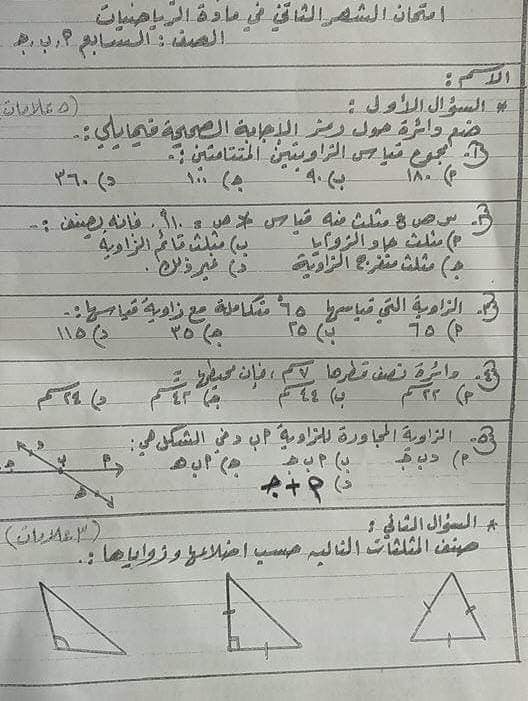 امتحان الشهر الثاني في مادة الرياضيات
الصف : السابع ٢، ب، ج
الاسم :
* السؤال الأول : (٥ علامات)
ضع دائرة حول رمز الإجابة الصحيحة فيما يلي :-
١- مجموع قياس الزاويتين المتتامتين :-
٢) ١٨٠ ب) ٩٠ ج) ١٠٠ د) ٣٦٠
٢- س ص ع مثلث فيه قياس > ص = ١١٠°، فانه يصنف :-
٢) مثلث حاد الزوايا ب) مثلث قائم الزاوية
ج) مثلث منفرج الزاوية د) غير ذلك .
٣- الزاوية التي قياسها ٦٥° متكاملة مع زاوية قياسها :-
٢) ٦٥ ب) ٢٥ ج) ٣٥ د) ١١٥
٤- دائرة نصف قطرها ٧ سم ، فإن محيطها =
٢) ٢٢ سم ب) ٤٤ سم ج) ٤٢ سم د) ٢٤ سم
٥- الزاوية المجاورة للزاوية ٢ ب د في الشكل هي :
٢) د ب ج ب) ٢ ب ج ج) ٢ ب ه
د) ٢ + ج
* السؤال الثاني : (٣ علامات)
صنف المثلثات التاليه حسب اضلاعها وزواياها :.